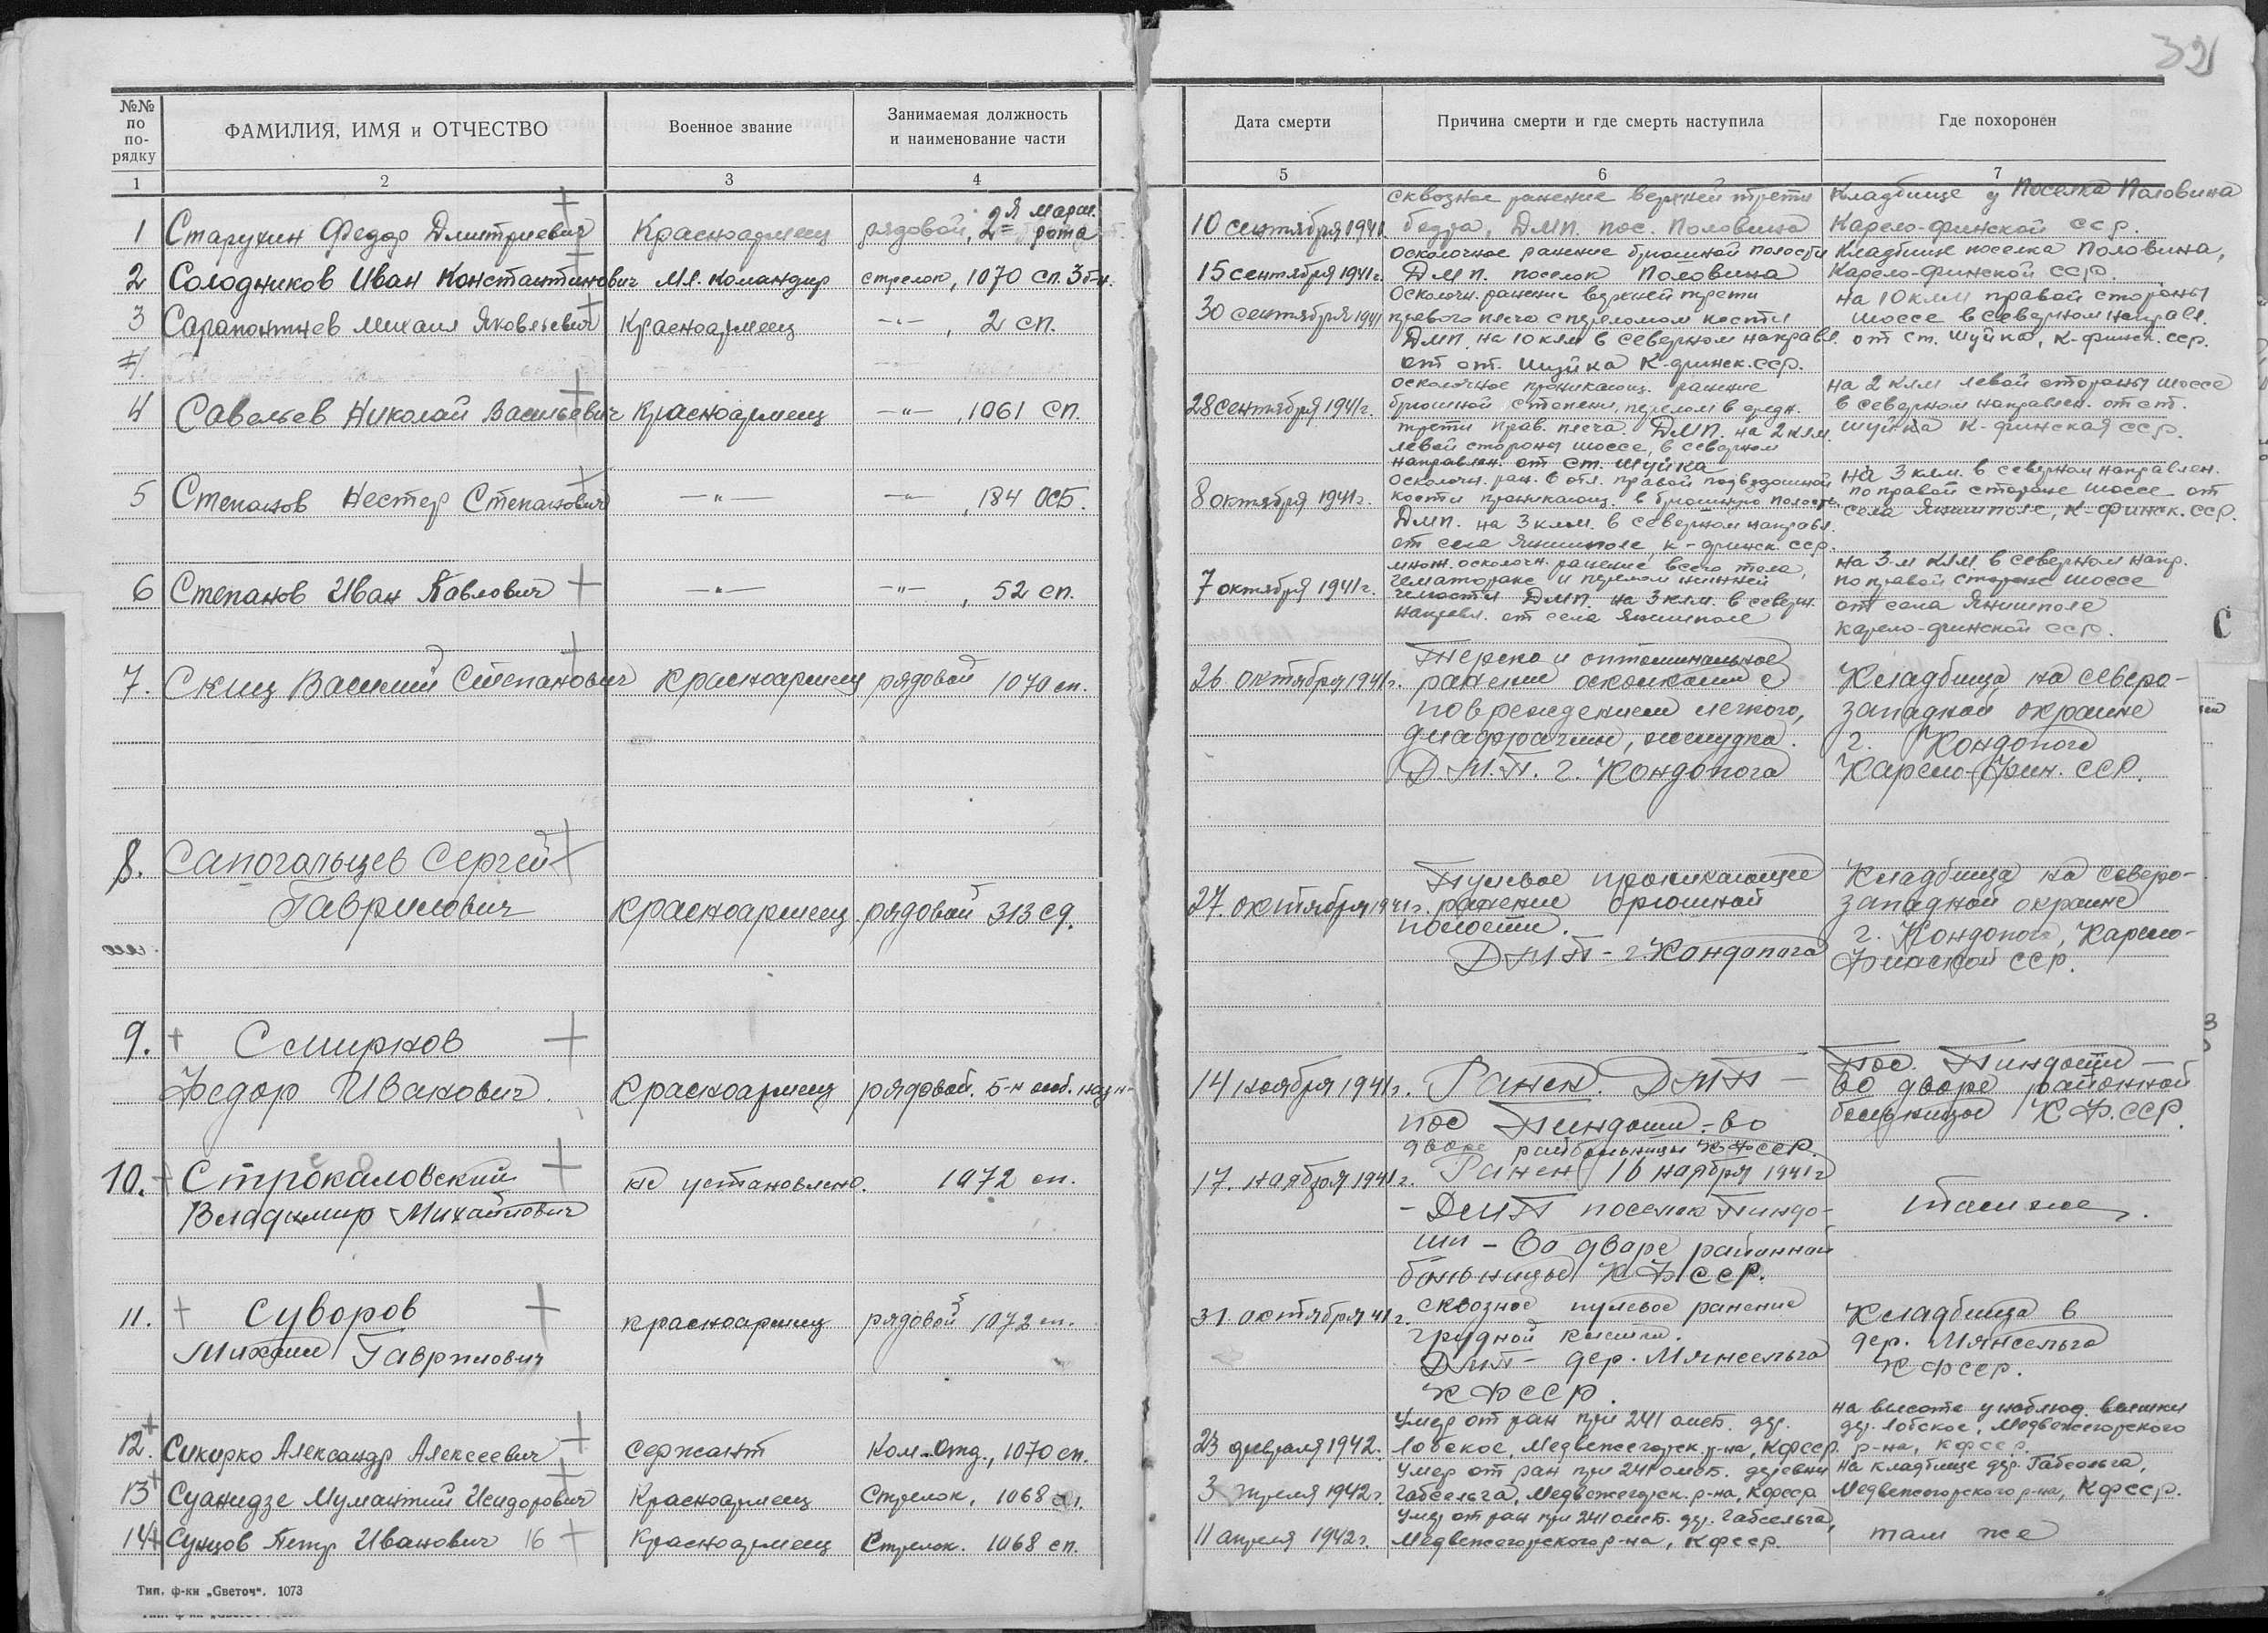 32
№№ по по- рядку
ФАМИЛИЯ, ИМЯ и ОТЧЕСТВО
Военное звание
Занимаемая должность и наименование части
Дата смерти
Причина смерти и где смерть наступила
Где похоронен
1 2 3 4 5 6 7
1 Старухин Федор Дмитриевич Красноармеец рядовой, 2я марш. рота
10 сентября 1941.
сквозное ранение верхней трети
бедра, ДМП. пос. Половина
Кладбище у Поселка Половина
Карело-финской ССР.
2 Солодников Иван Константинович Мл. командир стрелок, 1070 СП. 3 б-н.
15 сентября 1941 г.
осколочное ранение брюшной полости
ДМП. поселок Половина
Кладбище поселка Половина,
Карело-финской ССР.
3 Сарапонтнев Михаил Яковлевич Красноармеец —"— , 2 СП.
30 сентября 1941
Осколочн. ранение верхней трети
правого плеча с переломом кости
ДМП. на 10 клм в северном направл.
от ст. Шуйка К-финск. сср.
на 10 клм правой стороны
шоссе в северном направл.
от ст. Шуйка, К-финск. сср.
4 Савельев Николай Васильевич Красноармеец —"— , 1061 СП.
28 сентября 1941 г.
осколочное проникающ. ранение
брюшной степени, перелом в средн.
трети прав. плеча. ДМП. на 2 клм.
левой стороны шоссе, в северном
направлен. от ст. Шуйка
на 2 клм левой стороны шоссе
в северном направлен. от ст.
Шуйка К-финская сср.
5 Степанов Нестер Степанович —"— —"— , 184 ОСБ.
8 октября 1941 г.
Осколочн. ран. в обл. правой подвздошной
кости проникающ. в брюшную полость.
ДМП. на 3 клм. в северном направл.
от села Янишполе, к-финск. сср.
На 3 клм. в северном направлен.
по правой стороне шоссе от
села Янишполе, К-финск. сср.
6 Степанов Иван Павлович —"— —"— , 52 сп.
7 октября 1941 г.
множ. осколочн. ранение всего тела,
гематоракс и перелом нижней
челюсти ДМП. на 3 клм. в северн.
направл. от села Янишполе
на 3-м клм. в северном напр.
по правой стороне шоссе
от села Янишполе
карело-финской сср.
7. Скиц Василий Степанович красноармеец рядовой 1070 сп.
26 октября 1941 г.
ранение осколками с
повреждением легкого,
диафрагмы, желудка.
Д.М.П. г. Кондопога
Кладбища на северо-
западной окраине
г. Кондопога
Карело-Фин. ССР.
8. Сапогальцев Сергей
Гаврилович красноармеец рядовой 313 сд.
27. октября 1941 г.
Пулевое проникающее
ранение брюшной
полости.
ДМП - г. Кондопога
Кладбища на северо-
западной окраине
г. Кондопога, Карело-
Финской ССР.
9. + Смирнов
Федор Иванович. красноармеец рядовой. б-н особ. назн-
14 ноября 1941 г.
Ранен. ДМП —
пос Пиндоши - во
дворе райбольницы К-ФССР.
Пос. Пиндоши —
во дворе районной
больницы К.Ф.ССР.
10. Строкаловский
Владимир Михайлович
не установлено. 1072 сп.
17. ноября 1941 г.
Ранен 16 ноября 1941 г
- ДМП поселок Пиндо-
ши - во дворе районной
больницы К-ФССР.
там же.
11. + Суворов
Михаил Гаврилович
красноармеец рядовой 1072 сп.
31. октября 41 г.
сквозное пулевое ранение
грудной клетки.
ДМП - дер. Мянсельга
КФССР.
Кладбища в
дер. Мянсельга
КФССР.
12. Сикорко Александр Алексеевич сержант Ком. Отд., 1070 сп.
23 февраля 1942.
Умер от ран при 241 омсб. дер.
Лобское, Медвежегорск. р-на, КФССР.
на высоте у наблюд. вышки
дер. Лобское, Медвежегорского
р-на, КФССР.
13 Суанидзе Мумантий Исидорович Красноармеец Стрелок, 1068 сп.
3 апреля 1942 г.
Умер от ран при 241 омсб. деревни
Габсельга, Медвежегорск. р-на, Кфсср
на кладбище дер. Габсельга,
Медвежегорского р-на, Кфсср.
14 Сунцов Петр Иванович 16 Красноармеец Стрелок. 1068 сп.
11 апреля 1942 г.
Умер от ран при 241 омсб. дер. Габсельга,
Медвежегорского р-на, Кфсср.
там же
С
Тип. ф-ки „Светоч". 1073